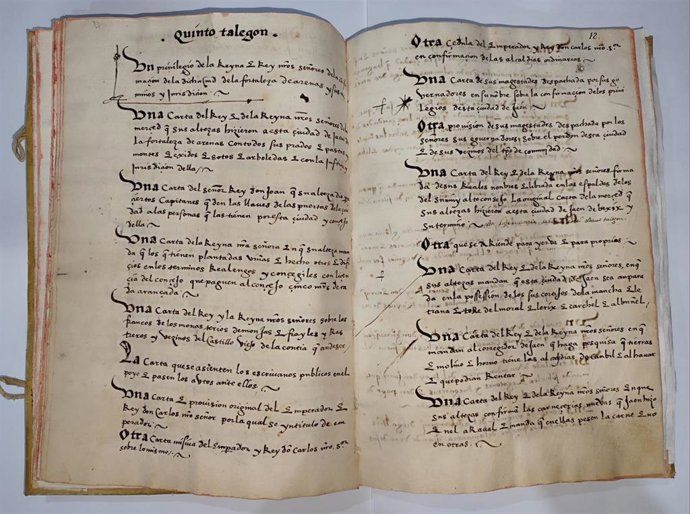 Quinto talegon.
Un privilegio de la Reyna E Rey nr̄os señores de la
macion de la dicha md de la fortaleza de arenas y sus
minos y Jurisdicion.
Una Carta del Rey E de la Reyna nr̄os señores
merced q̄ sus altezas hizieron a esta ciudad de Jaen
la fortaleza de arenas con todos sus prados E pastos
montes E exidos E sotos E arboledas E con la
Jurisdicion della/
Una Carta del señor Rey don Joan q̄ su alteza
çiertos Capitanes q̄ den las llaves de las puertas de la
dad a las personas q̄ las tienen por esta ciudad y consejo
della
Una Carta de la Reyna nr̄a señora En q̄ su alteza man
da q̄ los q̄ tienen plantadas viñas E hecho otros Edifi
cios en los terminos Realengos y conçegiles con licen
cia del consejo que paguen al consejo cinco mr̄s de
da arançada.
Una Carta del Rey y la Reyna nr̄os señores sobre los
francos de los monasterios de monjas E frayles y
teros y Vezinos del Castillo Viejo de la contia q̄ an de
La Carta que se asienten los escrivanos publicos en el
poyo E pasen los Autos ante ellos.
Una Carta E provision original del Emperador E
Rey don Carlos nr̄o señor por la qual se yntitulo de em
perador.
Otra Carta misiva del Emperador y Rey dō Carlos nr̄o. s.or
sobre lo mismo.
12
Otra Cedula del Emperador y Rey don carlos nr̄o. s.or
en confirmacion de las alcaldias ordinarias.
Una Carta de sus magestades despachada por sus go
vernadores en su nōbre sobre la confirmacion de los previ
legios desta ciudad de Jaen.
Otra provision de sus magestades despachada por los
señores sus governadores, sobre el perdon desta ciudad
E de sus vezinos del tp̄o de comunidad.
Una Carta del Rey E de la Reyna nr̄os señores firma
da de sus Reales nonbres E librada en las espaldas de los
del su muy alto consejo La original Carta de la merced q̄
sus altezas hizieron a esta ciudad de Jaen de bexix y
su termino.
Otra que se ARiende para yerva E para proprios
Una Carta del Rey E de la Reyna nr̄os señores, en q̄
sus altezas mandan q̄ esta ciudad de Jaen sea ampara
da en la possession de los cortijos de la mancha E le
triana E toRe del moral E lerix E carchel E albuñiel,
Una Carta del Rey E de la Reyna nr̄os señores En q̄
mandan al coregidor de Jaen q̄ haga pesquisa q̄ tierras
E molino E horno tiene las alcaidias de canbil E alhavar
E que podian Rentar.
Una Carta del Rey E de la Reyna nr̄os señores En que
sus altezas confirmā las carnecerias, nuebas q̄ Jaen hizo
E nel aRaval E manda q̄ en ellas pesen la carne E no
en otras.